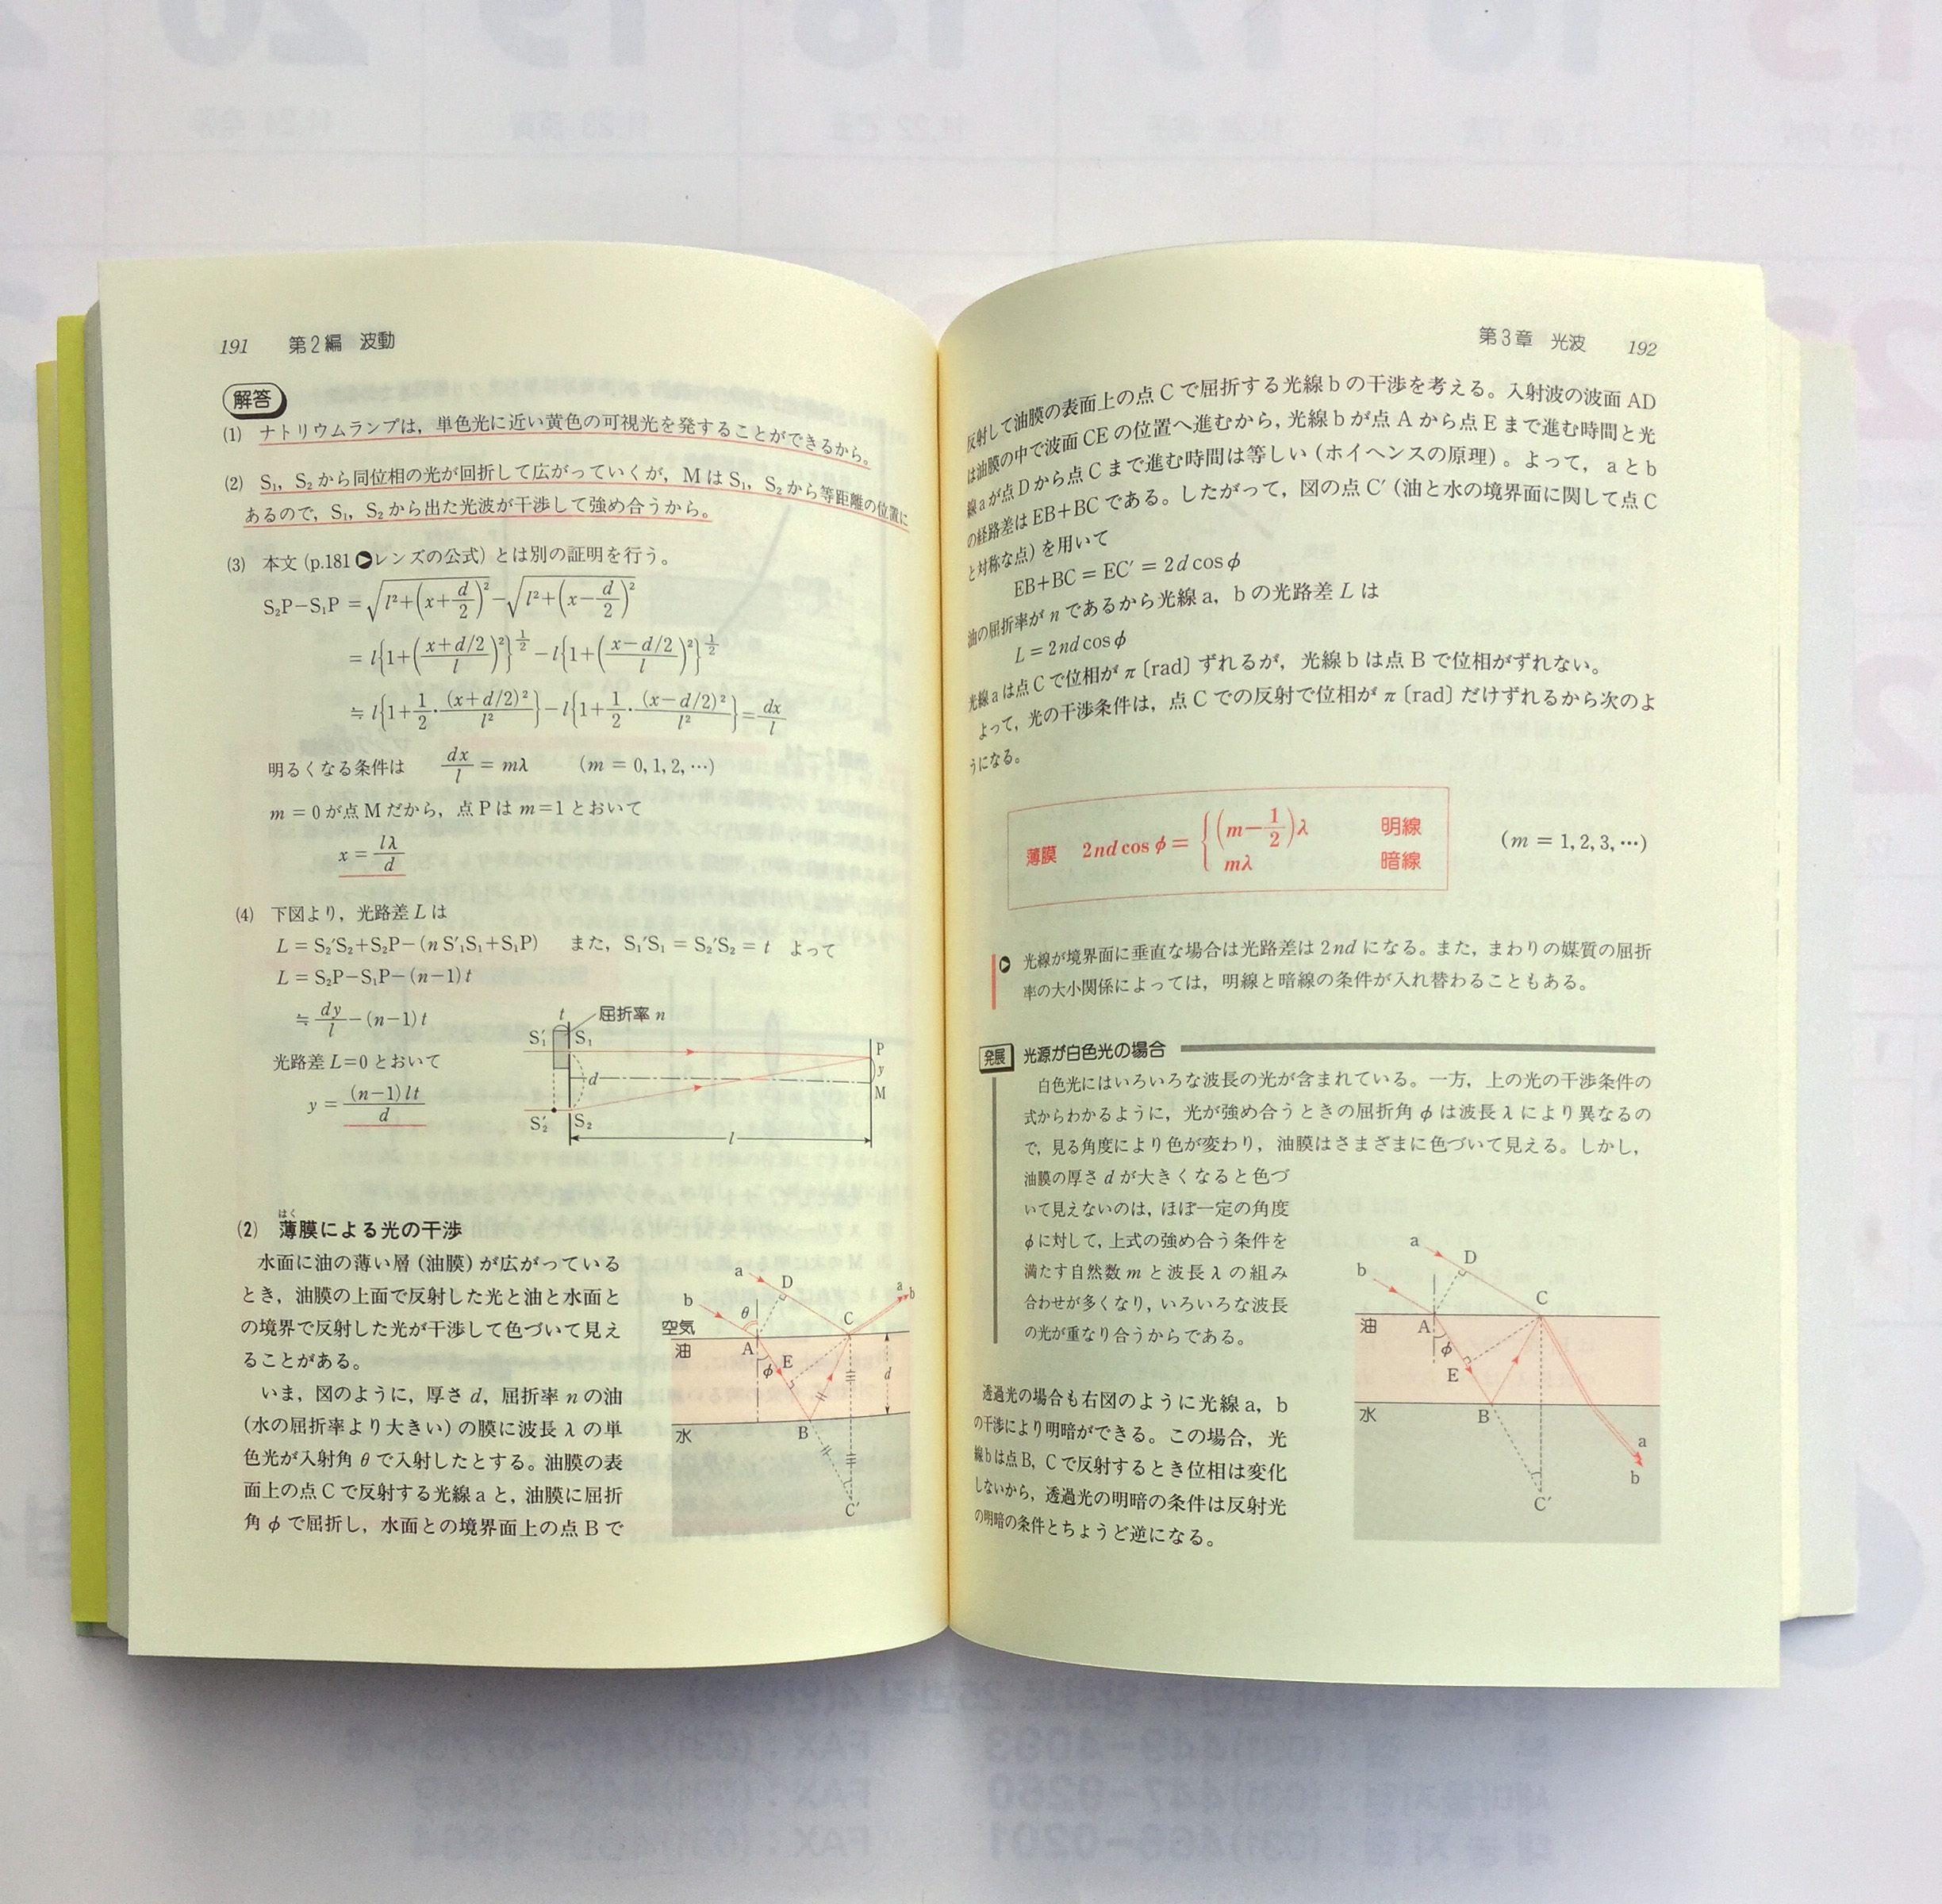 191 第2編 波動
解答
(1) ナトリウムランプは，単色光に近い黄色の可視光を発することができるから。
(2) S₁，S₂から同位相の光が回折して広がっていくが，MはS₁，S₂から等距離の位置に
あるので，S₁，S₂から出た光波が干渉して強め合うから。
(3) 本文（p.181▶レンズの公式）とは別の証明を行う。
S₂P−S₁P = √(l²+(x+d/2)²) − √(l²+(x−d/2)²)
= l{1+((x+d/2)/l)²}^(1/2) − l{1+((x−d/2)/l)²}^(1/2)
≒ l{1+1/2·(x+d/2)²/l²} − l{1+1/2·(x−d/2)²/l²} = dx/l
明るくなる条件は dx/l = mλ (m = 0, 1, 2, …)
m = 0が点Mだから，点Pはm=1とおいて
x = lλ/d
(4) 下図より，光路差Lは
L = S₂′S₂+S₂P−(nS′₁S₁+S₁P) また，S₁′S₁ = S₂′S₂ = t よって
L = S₂P−S₁P−(n−1)t
≒ dy/l −(n−1)t
光路差L=0とおいて
y = (n−1)lt/d
t 屈折率n
S₁′ S₁ P
d y
M
S₂′ S₂
l
(2) 薄膜による光の干渉
はく
水面に油の薄い層（油膜）が広がっている
とき，油膜の上面で反射した光と油と水面と
の境界で反射した光が干渉して色づいて見え
ることがある。
いま，図のように，厚さd，屈折率nの油
（水の屈折率より大きい）の膜に波長λの単
色光が入射角θで入射したとする。油膜の表
面上の点Cで反射する光線aと，油膜に屈折
角φで屈折し，水面との境界面上の点Bで
a D a
b θ C b
空気
油 A E
φ d
水 B
C′
第3章 光波 192
反射して油膜の表面上の点Cで屈折する光線bの干渉を考える。入射波の波面AD
は油膜の中で波面CEの位置へ進むから，光線bが点Aから点Eまで進む時間と光
線aが点Dから点Cまで進む時間は等しい（ホイヘンスの原理）。よって，aとb
の経路差はEB+BCである。したがって，図の点C′（油と水の境界面に関して点C
と対称な点）を用いて
EB+BC = EC′ = 2d cos φ
油の屈折率がnであるから光線a，bの光路差Lは
L = 2nd cos φ
光線aは点Cで位相がπ〔rad〕ずれるが，光線bは点Bで位相がずれない。
よって，光の干渉条件は，点Cでの反射で位相がπ〔rad〕だけずれるから次のよ
うになる。
薄膜 2nd cos φ = { (m−1/2)λ 明線
mλ 暗線
(m = 1, 2, 3, …)
▶ 光線が境界面に垂直な場合は光路差は2ndになる。また，まわりの媒質の屈折
率の大小関係によっては，明線と暗線の条件が入れ替わることもある。
発展 光源が白色光の場合
白色光にはいろいろな波長の光が含まれている。一方，上の光の干渉条件の
式からわかるように，光が強め合うときの屈折角φは波長λにより異なるの
で，見る角度により色が変わり，油膜はさまざまに色づいて見える。しかし，
油膜の厚さdが大きくなると色づ
いて見えないのは，ほぼ一定の角度
φに対して，上式の強め合う条件を
満たす自然数mと波長λの組み
合わせが多くなり，いろいろな波長
の光が重なり合うからである。
透過光の場合も右図のように光線a，b
の干渉により明暗ができる。この場合，光
線bは点B，Cで反射するとき位相は変化
しないから，透過光の明暗の条件は反射光
の明暗の条件とちょうど逆になる。
a D
b C
油 A
φ
E
水 B
a
b
C′